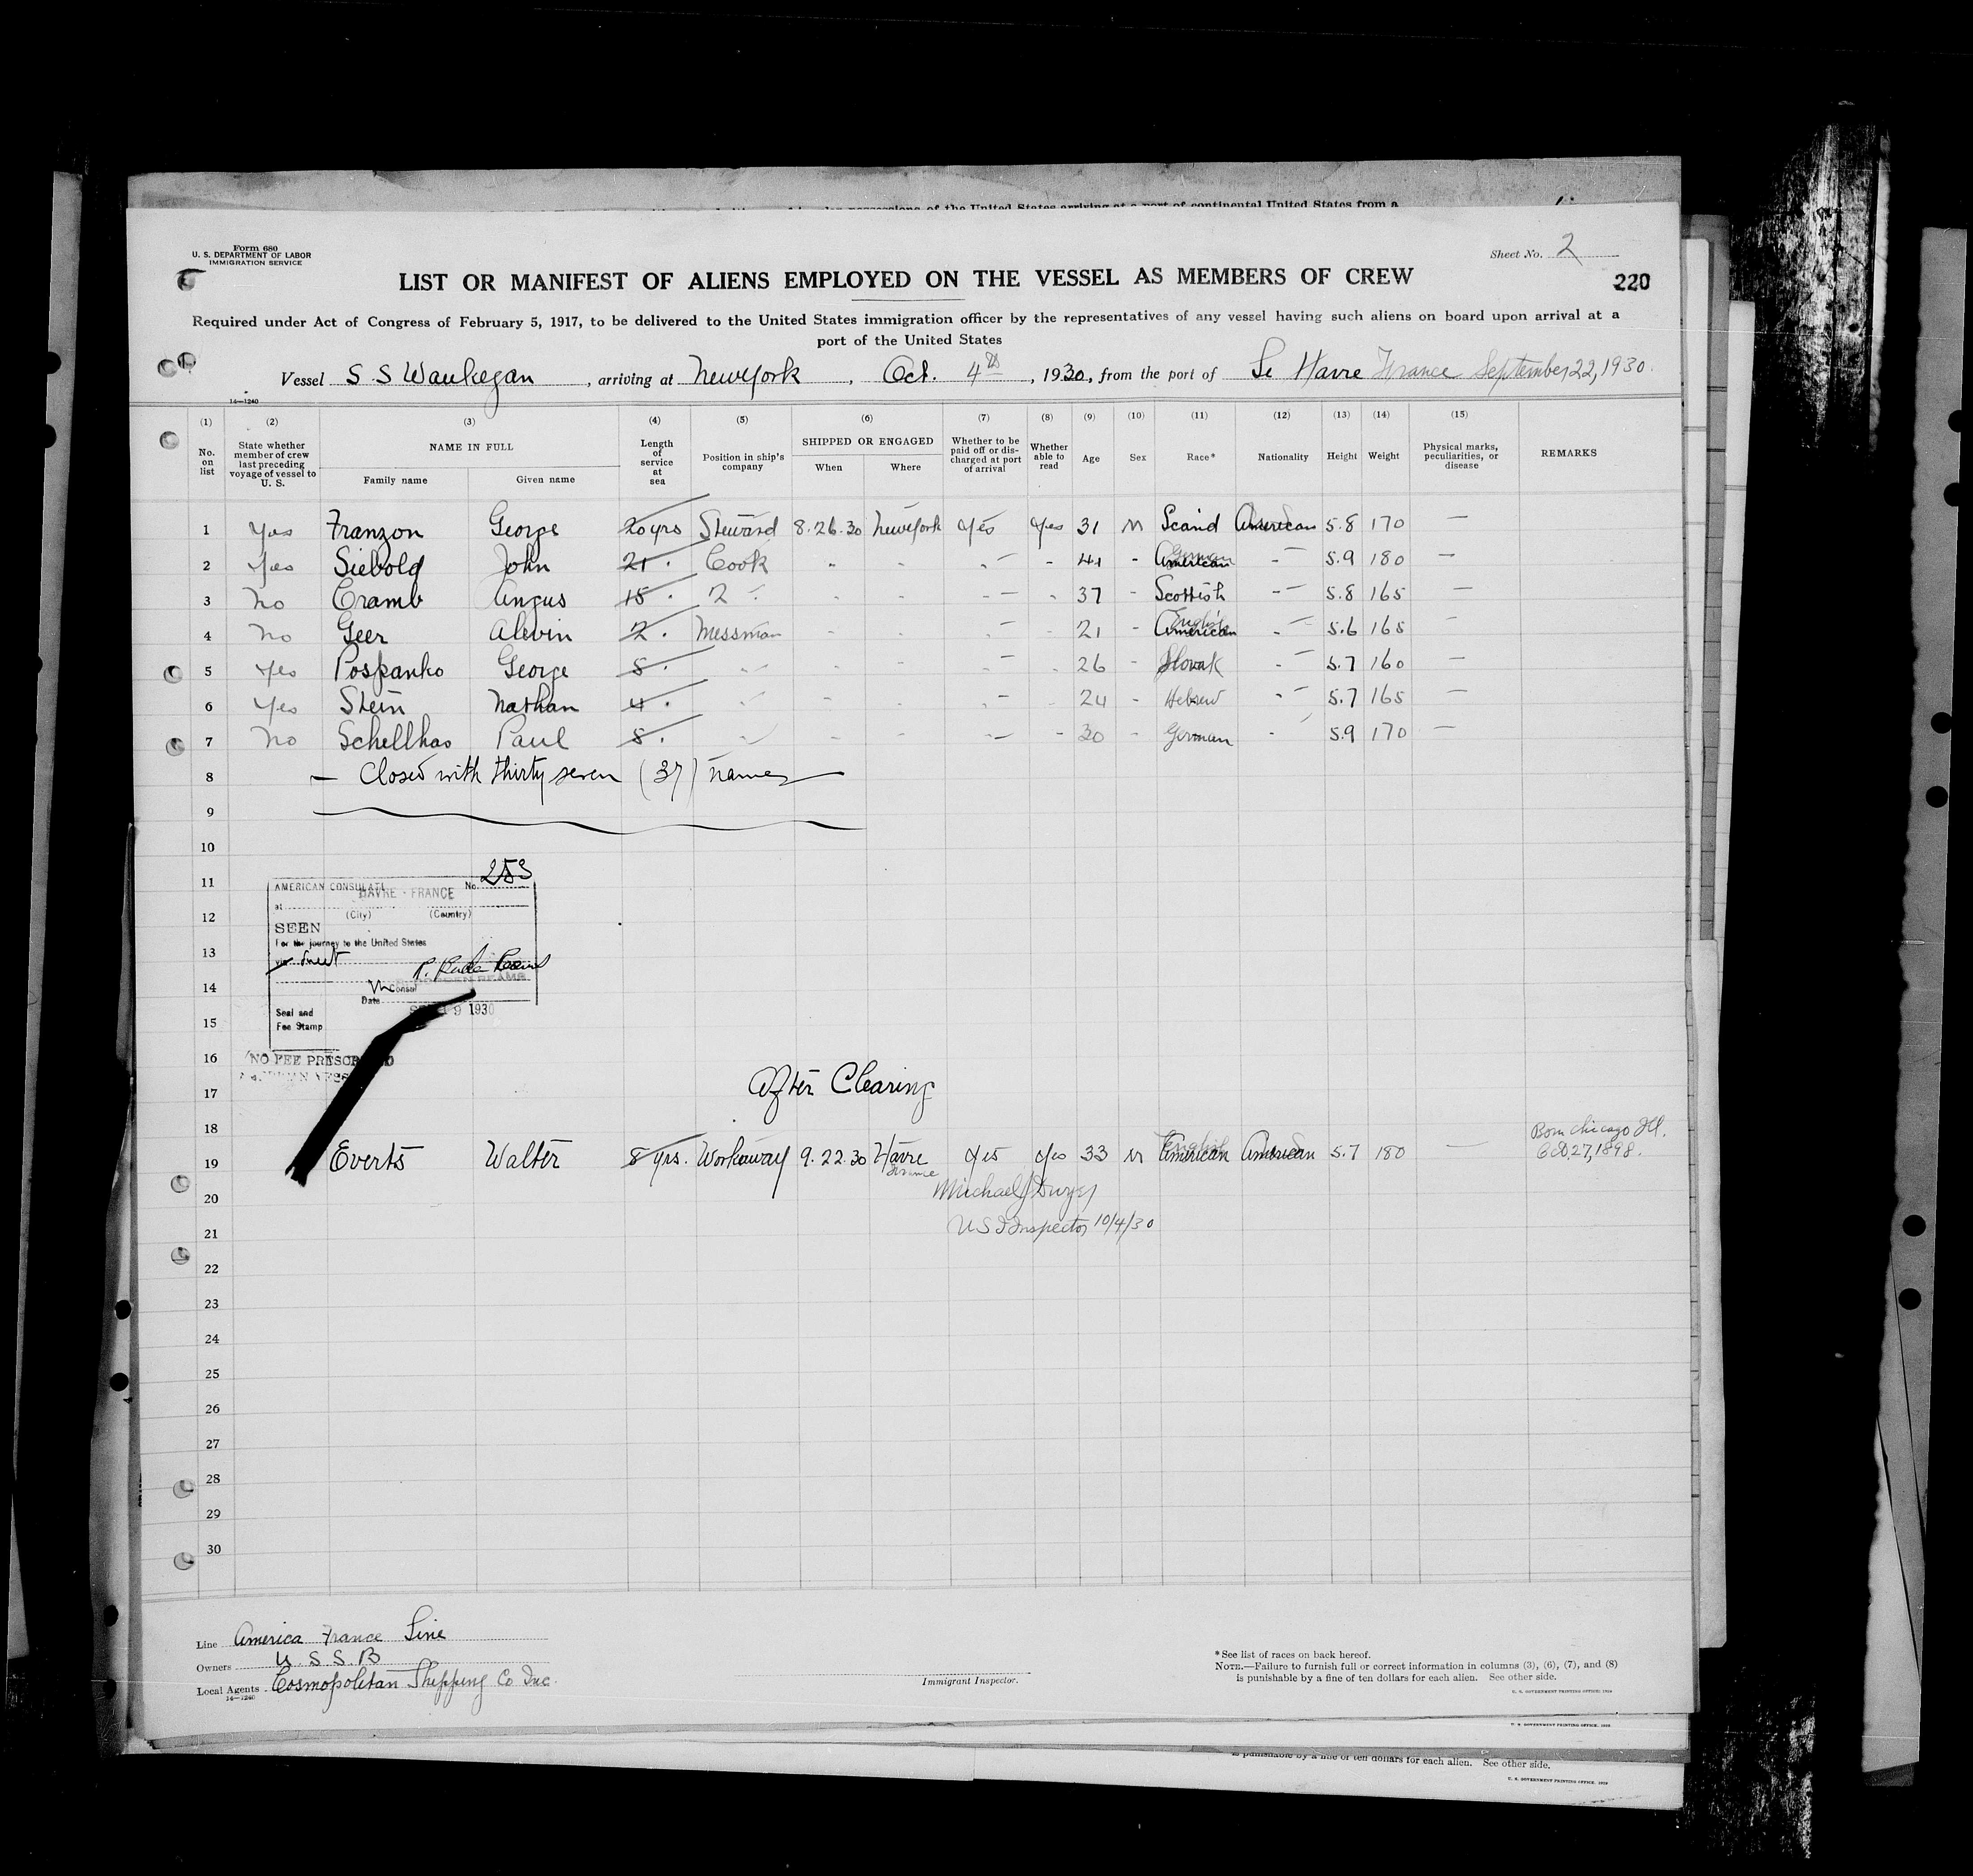 sessions of the United States arriving at a port of continental United States from a
Form 680
U. S. DEPARTMENT OF LABOR
IMMIGRATION SERVICE
Sheet No. 2
LIST OR MANIFEST OF ALIENS EMPLOYED ON THE VESSEL AS MEMBERS OF CREW
220
Required under Act of Congress of February 5, 1917, to be delivered to the United States immigration officer by the representatives of any vessel having such aliens on board upon arrival at a
port of the United States
Vessel S S Waukegan, arriving at New York, Oct. 4th, 1930, from the port of Le Havre France September 22, 1930.
14—1240
(1) (2) (3) (4) (5) (6) (7) (8) (9) (10) (11) (12) (13) (14) (15)
No. on list | State whether member of crew last preceding voyage of vessel to U. S. | NAME IN FULL | Family name | Given name | Length of service at sea | Position in ship's company | SHIPPED OR ENGAGED | When | Where | Whether to be paid off or discharged at port of arrival | Whether able to read | Age | Sex | Race* | Nationality | Height | Weight | Physical marks, peculiarities, or disease | REMARKS
1 Yes Franzon George 20 yrs Steward 8.26.30 New York Yes Yes 31 M Scand American 5.8 170 —
2 Yes Siebold John 21 " Cook - - - - 41 - American German - 5.9 180 —
3 No Cramb Angus 15 " 2 " - - - - 37 - Scottish - 5.8 165 —
4 No Geer Alevin 2 " Messman - - - - 21 - American English - 5.6 165 —
5 Yes Pospanko George 8 " " - - - 26 - Slovak - 5.7 160 —
6 Yes Stein Nathan 4 " " - - - - 24 - Hebrew - 5.7 165 —
7 No Schellhas Paul 8 " " - - - - 30 - German - 5.9 170 —
8 — Closed with thirty seven (37) names —
9
10
11
12
13
14
15
16
17
18
AMERICAN CONSULATE No. 253
at HAVRE - FRANCE
(City) (Country)
SEEN
For the journey to the United States
via direct
Consul
Date 9 1930
Seal and
Fee Stamp
NO FEE PRESCRIBED
After Clearing
19 Everts Walter 8 yrs. Workaway 9.22.30 Havre France Yes Yes 33 M American English American 5.7 180 — Born Chicago Ill. Oct. 27, 1898.
20 Michael J Dwyer
21 U S I Inspector 10/4/30
22
23
24
25
26
27
28
29
30
Line America France Line
Owners U. S. S. B
Local Agents Cosmopolitan Shipping Co Inc.
14—1240
Immigrant Inspector.
* See list of races on back hereof.
NOTE.—Failure to furnish full or correct information in columns (3), (6), (7), and (8)
is punishable by a fine of ten dollars for each alien. See other side.
U. S. GOVERNMENT PRINTING OFFICE: 1929
U. S. GOVERNMENT PRINTING OFFICE: 1929
is punishable by a fine of ten dollars for each alien. See other side.
U. S. GOVERNMENT PRINTING OFFICE: 1929